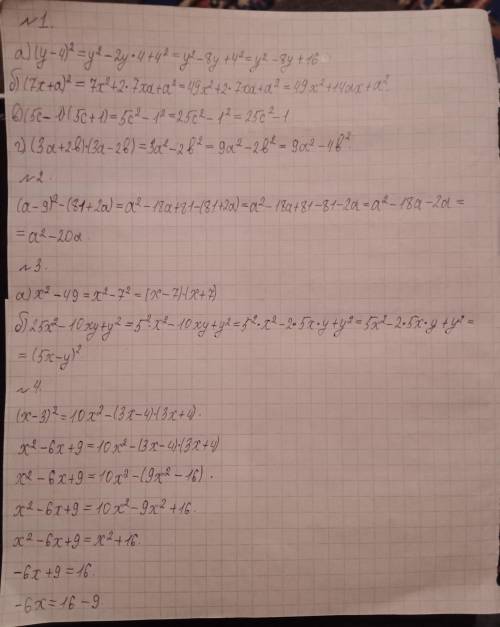 №1.
а) (y-4)² = y²-2y·4+4² = y²-8y+4² = y²-8y+16
б) (7x+a)² = 7x²+2·7xa+a² = 49x²+2·7xa+a² = 49x²+14ax+a²
в) (5c-1)(5c+1) = 5c²-1² = 25c²-1² = 25c²-1
г) (3a+2в)·(3a-2в) = 3a²-2в² = 9a²-2в² = 9a²-4в²
№2
(a-9)²-(81+2a) = a²-18a+81-(81+2a) = a²-18a+81-81-2a = a²-18a-2a =
= a²-20a.
№3.
а) x²-49 = x²-7² = (x-7)·(x+7)
б) 25x²-10xy+y² = 5²·x²-10xy+y² = 5²·x²-2·5x·y+y² = 5x²-2·5x·y+y² =
= (5x-y)²
№4.
(x-3)² = 10x²-(3x-4)·(3x+4).
x²-6x+9 = 10x²-(3x-4)·(3x+4)
x²-6x+9 = 10x²-(9x²-16).
x²-6x+9 = 10x²-9x²+16.
x²-6x+9 = x²+16.
-6x+9 = 16.
-6x = 16-9